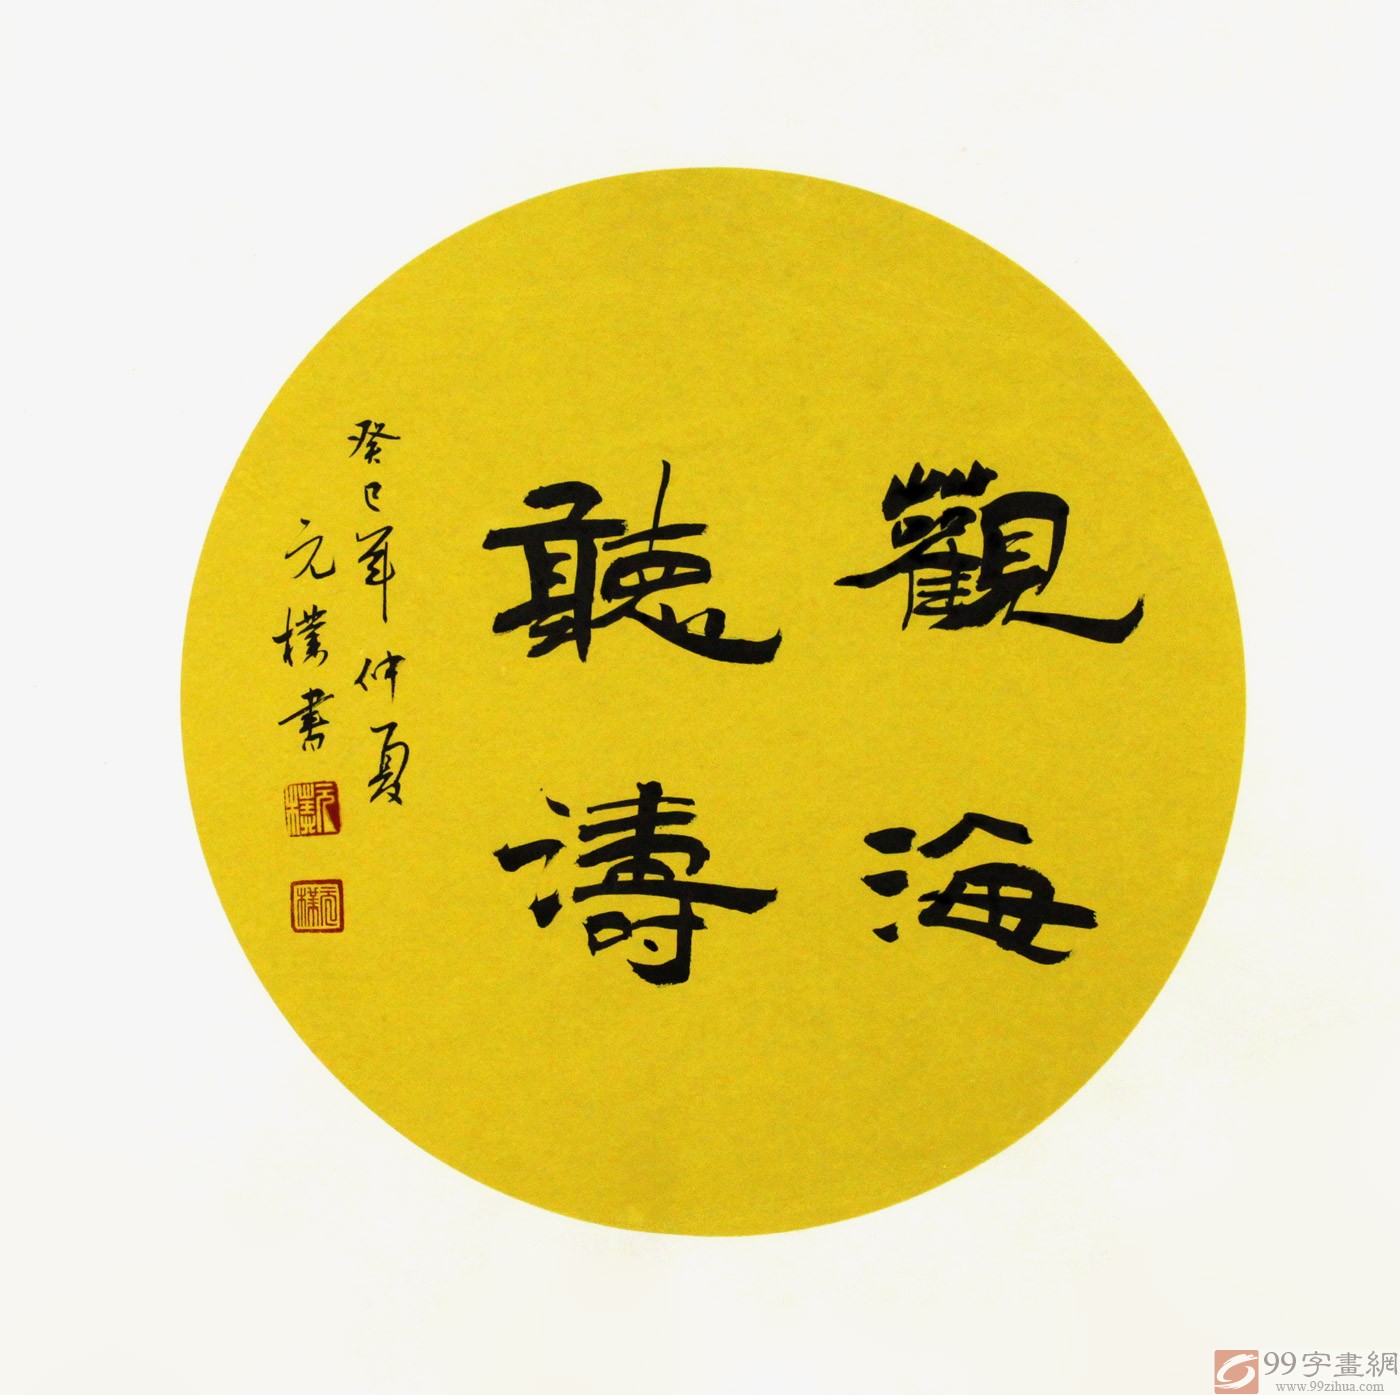 觀海
聽濤
癸巳年仲夏
元樸書
元樸
元樸
99字畫網
www.99zihua.com